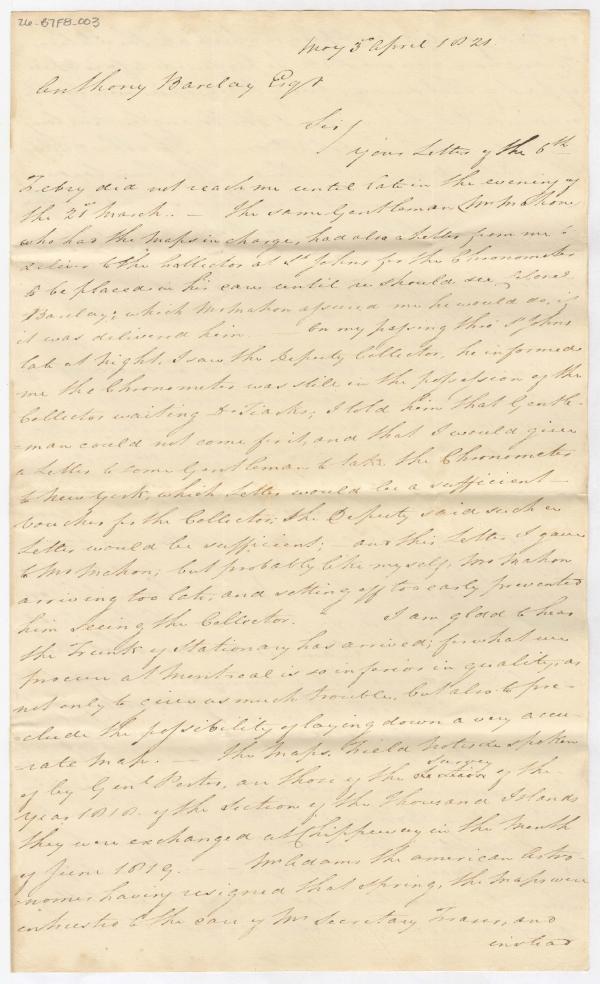 26-B7F8-003
May 3d April 1821.
Anthony Barclay Esqr
Sir/
Your Letter of the 6th
Febry did not reach me until late in the evening of
the 21st March. — The same Gentleman (Mr McMahon)
who has the Maps in charge, had also a Letter from me to
deliver to the Collector at St Johns for the Chronometer
to be placed in his care until he should see
Barclay; which McMahon assured me he would do, if
it was delivered him. — On my passing thro' St Johns
late at Night, I saw the Deputy Collector, he informed
me the Chronometer was still in the possession of the
Collector waiting Dr Tiarks; I told him that Gentle-
=man could not come first, and that I would give
a Letter to some Gentleman to take the Chronometer
to New York, which Letter would be a sufficient
voucher for the Collector; the Deputy said such a
Letter would be sufficient; — and this Letter I gave
to Mr McMahon; but probably like myself, Mr McMahon
arriving too late, and setting off too early prevented
him seeing the Collector. I am glad to hear
the Trunk of Stationary has arrived; for what we
procure at Montreal is so inferior in quality, as
not only to give us much trouble, but also to pre-
=clude the possibility of laying down a very accu-
-rate map. — The Maps, Field Notes &c spoken
of by Genl Porter, are those of the survey of the
year 1818. of the Section of the Thousand Islands
they were exchanged at Chippeway in the Month
of June 1819. — Mr Adams the american Astro-
-nomer having resigned that Spring, the Maps were
intrusted to the care of Mr Secretary Fraser, and
instead